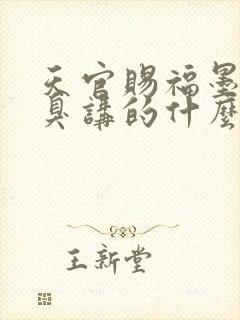 天官賜福墨
具講的什麼
王新堂